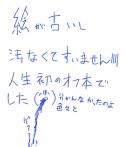 絵が古いし
汚なくてすいません!!!
人生初のオフ本で
した(笑)分かんなかったのよ
色々と